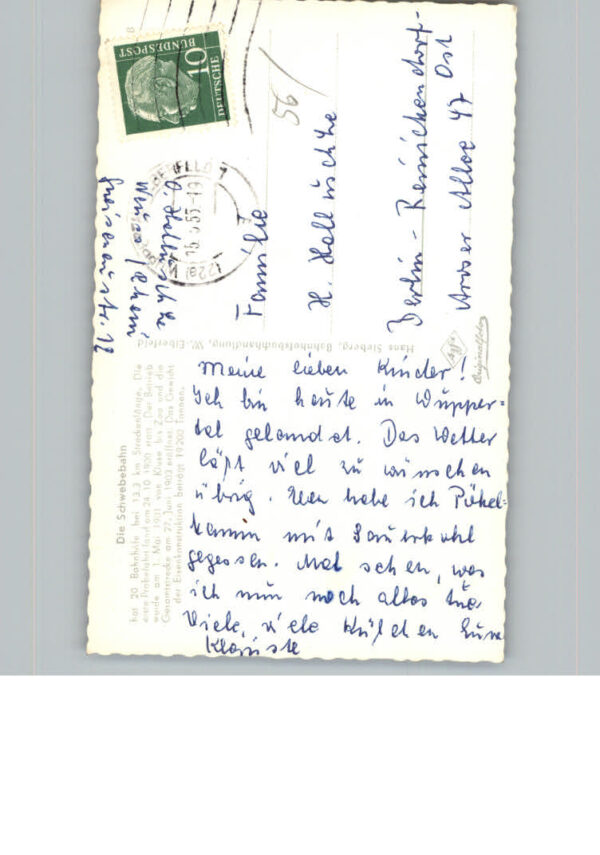 Die Schwebebahn
hat 20 Bahnhöfe bei 13,3 km Streckenlänge. Die
erste Probefahrt fand am 24.10.1900 statt. Der Betrieb
wurde am 1. Mai 1901 von Kluse bis Zoo und die
Gesamtstrecke am 27. Juni 1903 eröffnet. Das Gewicht
der Eisenkonstruktion beträgt 19200 Tonnen.
Meine lieben Kinder!
Ich bin heute in Wupper=
tal gelandet. Das Wetter
läßt viel zu wünschen
übrig. Nun habe ich Pökel=
kamm mit Sauerkohl
gegessen. Mal sehen, was
ich nun noch alles tue.
Viele, viele Küßchen Eure
Hans Sieberg, Bahnhofsbuchhandlung, W.-Elberfeld
Agfa
Originalfoto
10
DEUTSCHE
BUNDESPOST
(22a)
56/
Familie
H. Halluschke
Berlin - Reinickendorf-
Ost
Aroser Allee 47